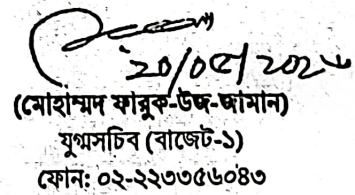 ২০/০৫/২০২৬
(মোহাম্মদ ফারুক-উজ-জামান)
যুগ্মসচিব (বাজেট-১)
ফোন: ০২-২২৩৩৫৬০৪৩